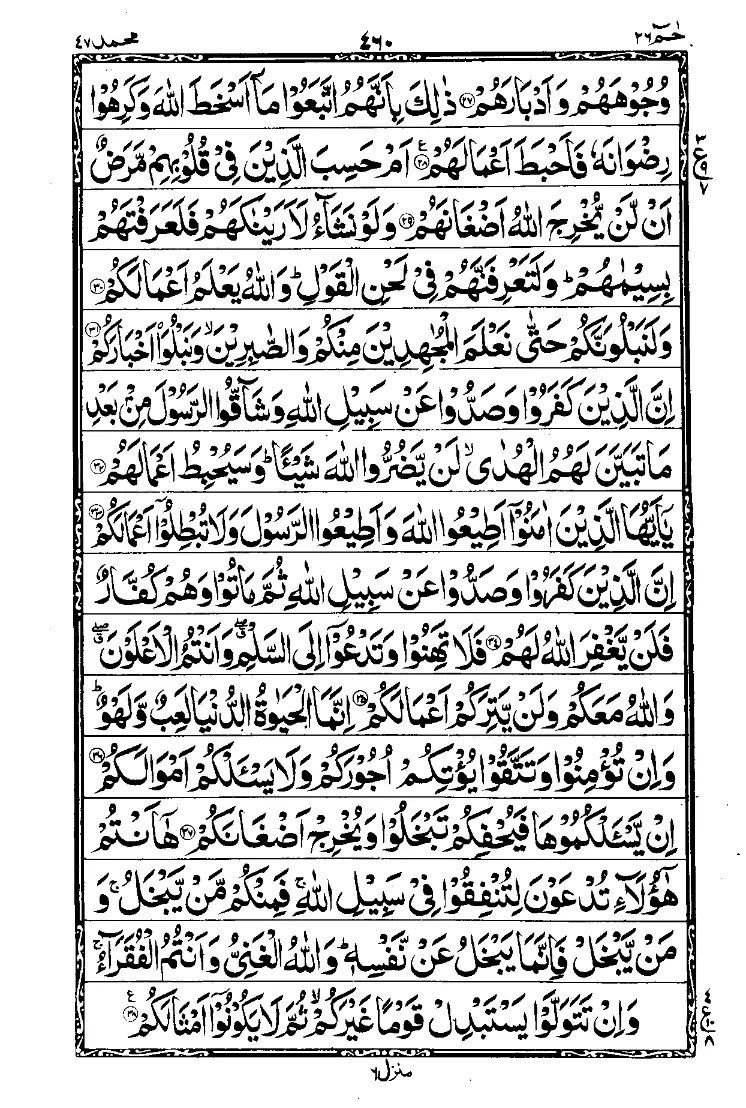 حٰمٓ ٢٦ ٤٦٠ محمد ٤٧
وُجُوْهَهُمْ وَاَدْبَارَهُمْ ﴿۲۷﴾ ذٰلِكَ بِاَنَّهُمُ اتَّبَعُوْا مَآ اَسْخَطَ اللّٰهَ وَكَرِهُوْا
رِضْوَانَهٗ فَاَحْبَطَ اَعْمَالَهُمْ ﴿۲۸﴾ ع اَمْ حَسِبَ الَّذِيْنَ فِىْ قُلُوْبِهِمْ مَّرَضٌ
اَنْ لَّنْ يُّخْرِجَ اللّٰهُ اَضْغَانَهُمْ ﴿۲۹﴾ وَلَوْ نَشَآءُ لَاَرَيْنٰكَهُمْ فَلَعَرَفْتَهُمْ
بِسِيْمٰهُمْ ؕ وَلَتَعْرِفَنَّهُمْ فِىْ لَحْنِ الْقَوْلِ ؕ وَاللّٰهُ يَعْلَمُ اَعْمَالَكُمْ ﴿۳۰﴾
وَلَنَبْلُوَنَّكُمْ حَتّٰى نَعْلَمَ الْمُجٰهِدِيْنَ مِنْكُمْ وَالصّٰبِرِيْنَ ۙ وَنَبْلُوَا۟ اَخْبَارَكُمْ ﴿۳۱﴾
اِنَّ الَّذِيْنَ كَفَرُوْا وَصَدُّوْا عَنْ سَبِيْلِ اللّٰهِ وَشَآقُّوا الرَّسُوْلَ مِنْۢ بَعْدِ
مَا تَبَيَّنَ لَهُمُ الْهُدٰى ۙ لَنْ يَّضُرُّوا اللّٰهَ شَيْـًٔا ؕ وَسَيُحْبِطُ اَعْمَالَهُمْ ﴿۳۲﴾
يٰٓاَيُّهَا الَّذِيْنَ اٰمَنُوْٓا اَطِيْعُوا اللّٰهَ وَاَطِيْعُوا الرَّسُوْلَ وَلَا تُبْطِلُوْٓا اَعْمَالَكُمْ ﴿۳۳﴾
اِنَّ الَّذِيْنَ كَفَرُوْا وَصَدُّوْا عَنْ سَبِيْلِ اللّٰهِ ثُمَّ مَاتُوْا وَهُمْ كُفَّارٌ
فَلَنْ يَّغْفِرَ اللّٰهُ لَهُمْ ﴿۳۴﴾ فَلَا تَهِنُوْا وَتَدْعُوْٓا اِلَى السَّلْمِ ۖ وَاَنْتُمُ الْاَعْلَوْنَ ۖ
وَاللّٰهُ مَعَكُمْ وَلَنْ يَّتِرَكُمْ اَعْمَالَكُمْ ﴿۳۵﴾ اِنَّمَا الْحَيٰوةُ الدُّنْيَا لَعِبٌ وَّلَهْوٌ ؕ
وَاِنْ تُؤْمِنُوْا وَتَتَّقُوْا يُؤْتِكُمْ اُجُوْرَكُمْ وَلَا يَسْـَٔلْكُمْ اَمْوَالَكُمْ ﴿۳۶﴾
اِنْ يَّسْـَٔلْكُمُوْهَا فَيُحْفِكُمْ تَبْخَلُوْا وَيُخْرِجْ اَضْغَانَكُمْ ﴿۳۷﴾ هٰٓاَنْتُمْ
هٰٓؤُلَآءِ تُدْعَوْنَ لِتُنْفِقُوْا فِىْ سَبِيْلِ اللّٰهِ ۚ فَمِنْكُمْ مَّنْ يَّبْخَلُ ۚ وَ
مَنْ يَّبْخَلْ فَاِنَّمَا يَبْخَلُ عَنْ نَّفْسِهٖ ؕ وَاللّٰهُ الْغَنِىُّ وَاَنْتُمُ الْفُقَرَآءُ ۚ
وَاِنْ تَتَوَلَّوْا يَسْتَبْدِلْ قَوْمًا غَيْرَكُمْ ۙ ثُمَّ لَا يَكُوْنُوْٓا اَمْثَالَكُمْ ﴿۳۸﴾ ع
منزل ٦